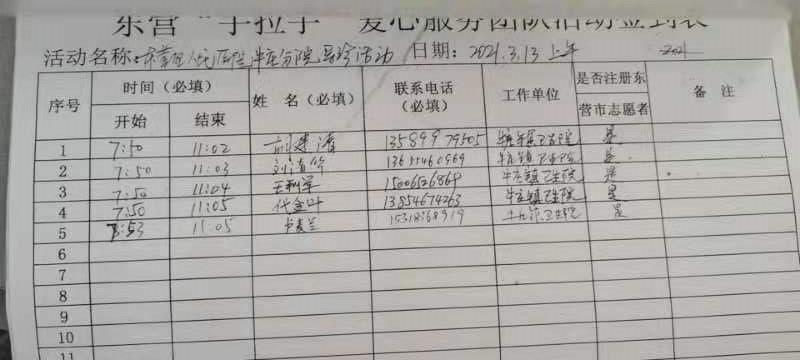 东营“手拉手”爱心服务团队活动签到表
活动名称: 东营区人民医院牛庄分院导诊活动 日期: 2021.3.13 上午
序号 时间(必填) 姓 名(必填) 联系电话(必填) 工作单位 是否注册东营市志愿者 备 注
开始 结束
1 7:50 11:02 13589979505 是
2 7:50 11:03 刘清竹 13611460969 牛庄镇卫生院 是
3 7:50 11:04 王利军 15006526869 牛庄镇卫生院 是
4 7:50 11:05 代金叶 13854674263 牛庄镇卫生院 是
5 7:53 11:05 15318368919 卫生院 是
6
7
8
9
10
11